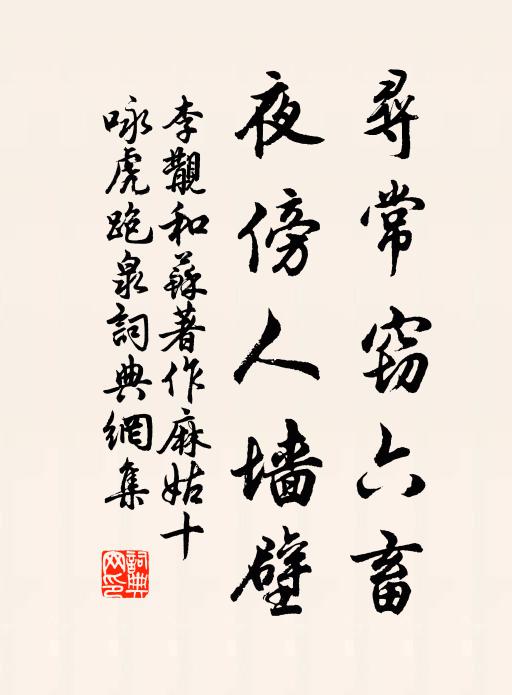 尋常窃六畜
夜傍人墙壁
李覯和蘇著作麻姑十
咏虎跑泉詞典網集
詞典
网印